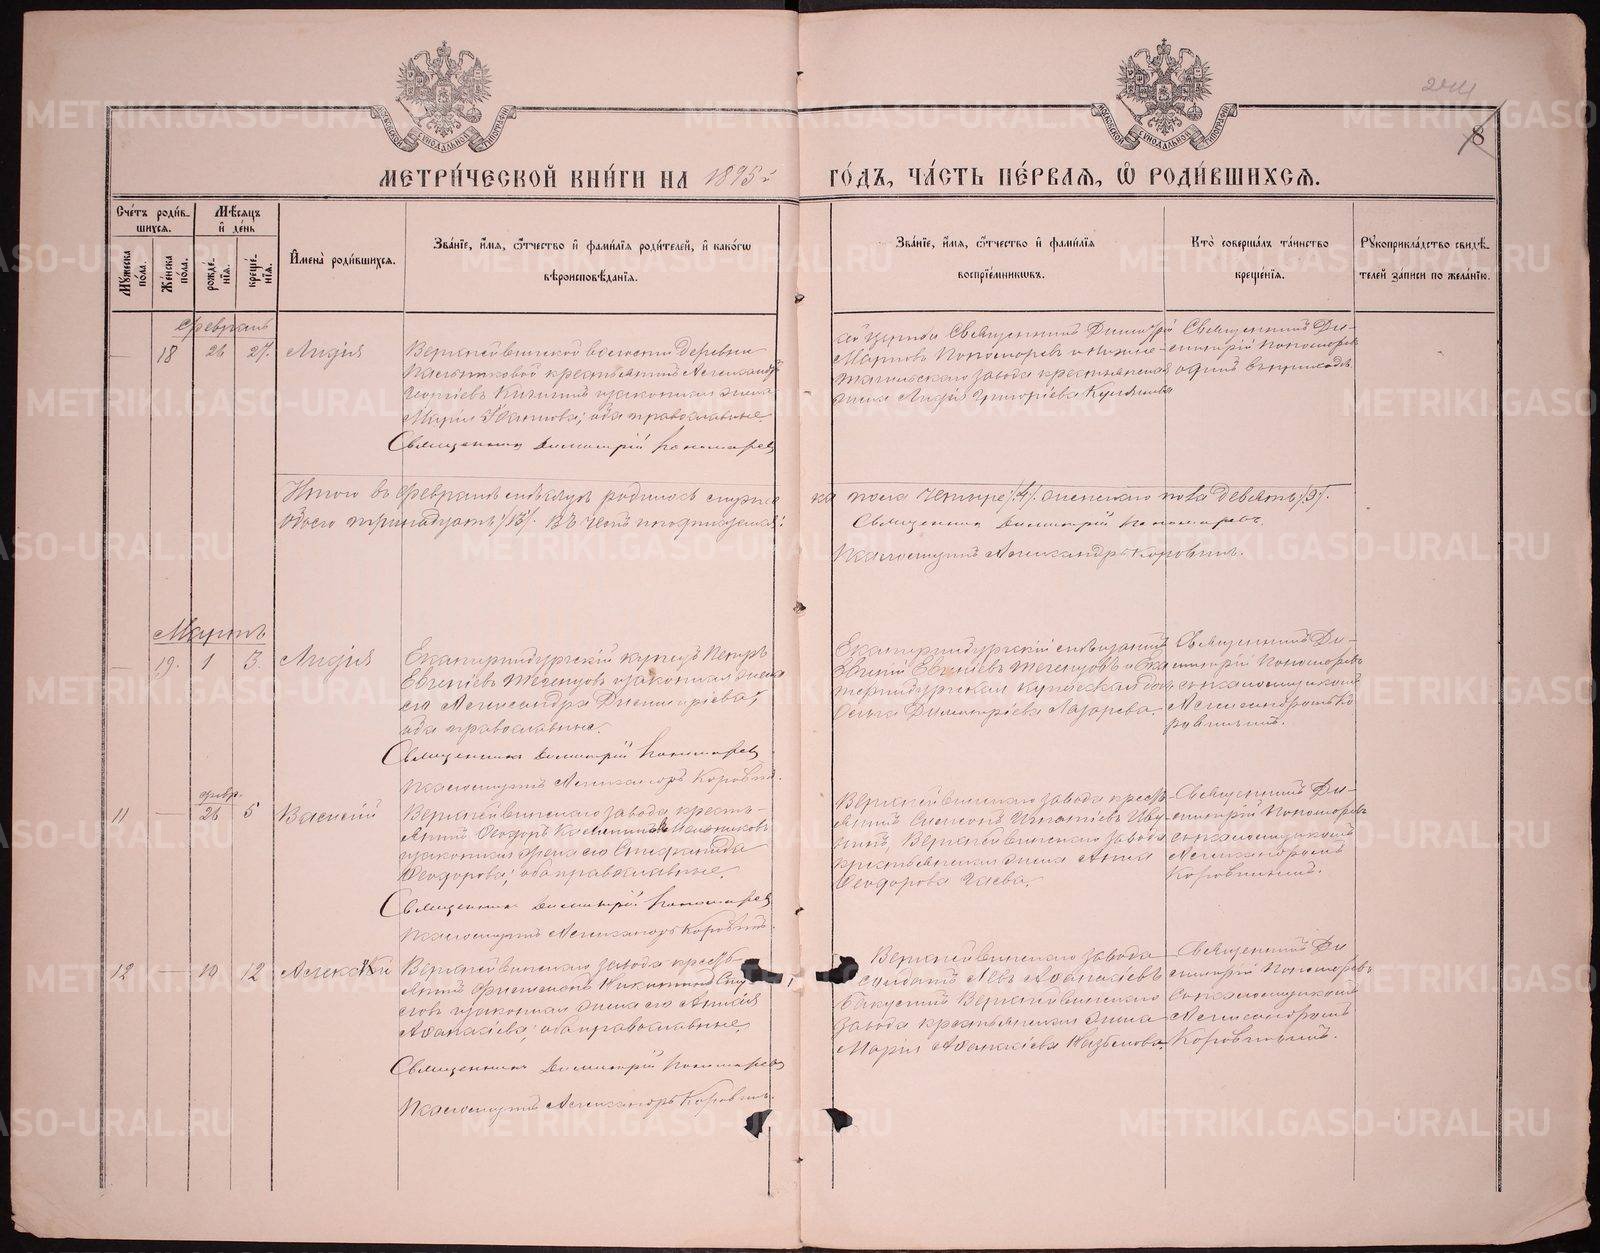 244
8
МОСКОВСКОЙ СѴНОДАЛЬНОЙ ТИПОГРАФІИ
МОСКОВСКОЙ СѴНОДАЛЬНОЙ ТИПОГРАФІИ
МЕТРИ́ЧЕСКОЙ КНИ́ГИ НА 1895й ГО́ДЪ, ЧА́СТЬ ПЕ́РВАѦ, Ѽ РОДИ́ВШИХСѦ.
Сче́тъ роди́в-
шихся.
Мꙋ́жеска по́ла.
Же́нска по́ла.
Мѣ́сяцъ и҆ де́нь
рожде́-нїя.
креще́-нїя.
И҆мена̀ роди́вшихся.
Зва́нїе, и҆́мя, ѻ҆́тчество и҆ фами́лїя роди́телей, и҆ како́гѡ
вѣроисповѣ́данїя.
Зва́нїе, и҆́мя, ѻ҆́тчество и҆ фами́лїя
воспрїе́мникѡвъ.
Кто̀ соверша́лъ та́инство
креще́нїя.
Рꙋкоприкла́дство свидѣ́-
телей за́писи по жела́нїю.
Февраль
— 18 26 27. Лидія
Верхнейвинской волости деревни
крестьянинъ Александръ
Георгіевъ и законная жена
Марія Иванова; оба православные.
Священникъ Димитрій Пономаревъ
Священникъ Димитрій
Пономаревъ и Нижне-
тагильскаго завода крестьянская
жена Лидія Григоріева
Священникъ Ди-
митрій Пономаревъ
Итого въ Февралѣ мѣсяцѣ родилось мужска пола четыре /4/. женскаго пола девять /9/.
Обоего тринадцать /13/. Въ чемъ и подписуемся:
Священникъ Димитрій Пономаревъ.
Псаломщикъ Александръ Коровинъ.
Мартъ
— 19. 1 3. Лидія
Екатеринбургскій купецъ Петръ
Евгеніевъ и законная жена
его Александра Димитріева;
оба православные.
Священникъ Димитрій Пономаревъ
Псаломщикъ Александръ Коровинъ.
Екатеринбургскій
Евгеній Евгеніевъ и Ека-
теринбургская купеческая дочь
Ольга Димитріева Лазарева.
Священникъ Ди-
митрій Пономаревъ
съ псаломщикомъ
Александромъ Ко-
ровинымъ.
февр.
11 — 26 5 Василій
Верхнейвинскаго завода кресть-
янинъ Ѳеодоръ Мельниковъ
и законная жена его Стефанида
Ѳеодорова; оба православные.
Священникъ Димитрій Пономаревъ
Псаломщикъ Александръ Коровинъ.
Верхнейвинскаго завода кресть-
янинъ Симеонъ Игнатіевъ
Верхнейвинскаго завода
крестьянская жена Анна
Ѳеодорова Гаева.
Священникъ Ди-
митрій Пономаревъ
съ псаломщикомъ
Александромъ
Коровинымъ.
12 — 10 12 Алексѣй
Верхнейвинскаго завода кресть-
янинъ Филимонъ Никитинъ
и законная жена его Анна
Аѳанасіева; оба православные.
Священникъ Димитрій Пономаревъ
Псаломщикъ Александръ Коровинъ.
Верхнейвинскаго завода
солдатъ Левъ Аѳанасіевъ
Верхнейвинскаго
завода крестьянская жена
Марія Аѳанасіева
Священникъ Ди-
митрій Пономаревъ
съ псаломщикомъ
Александромъ
Коровинымъ.
METRIKI.GASO-URAL.RU